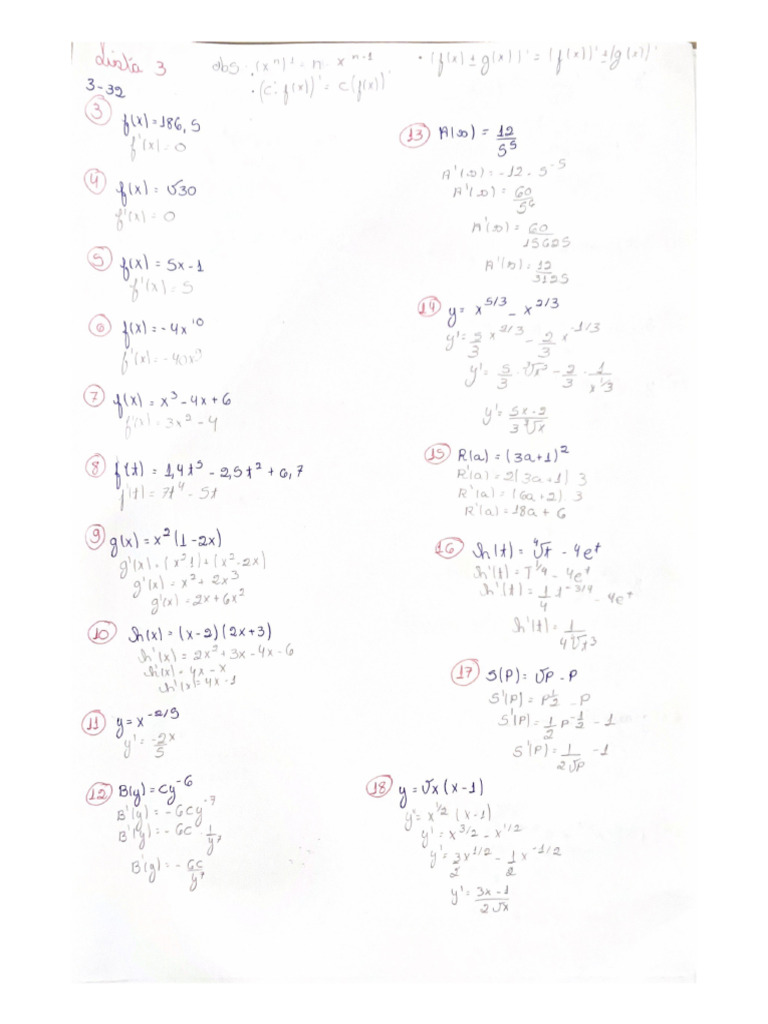 Lista 3
obs: • (xⁿ)' = n · xⁿ⁻¹
• (f(x) ± g(x))' = (f(x))' ± (g(x))'
• (c · f(x))' = c(f(x))'
3-32
3 f(x) = 186,5
f'(x) = 0
4 f(x) = √30
f'(x) = 0
5 f(x) = 5x - 1
f'(x) = 5
6 f(x) = - 4x¹⁰
f'(x) = - 40x⁹
7 f(x) = x³ - 4x + 6
f'(x) = 3x² - 4
8 f(t) = 1,4t⁵ - 2,5t² + 6,7
f'(t) = 7t⁴ - 5t
9 g(x) = x² (1 - 2x)
g'(x) = (x² 1) + (x² - 2x)
g'(x) = x² + 2x³
g'(x) = 2x + 6x²
10 h(x) = (x - 2) (2x + 3)
h'(x) = 2x² + 3x - 4x - 6
h'(x) = 4x - x
h'(x) = 4x - 1
11 y = x^-2/5
y' = -2/5 x
12 B(y) = cy⁻⁶
B'(y) = - 6cy⁻⁷
B'(y) = - 6c · 1/y⁷
B'(y) = - 6c/y⁷
13 A(s) = 12/s⁵
A'(s) = - 12 · s⁻⁵
A'(s) = 60/s⁶
A'(s) = 60/15625
A'(s) = 12/3125
14 y = x^5/3 - x^2/3
y' = 5/3 x^2/3 - 2/3 x^-1/3
y' = 5/3 · ³√x² - 2/3 · 1/x^1/3
y' = 5x - 2/3 ³√x
15 R(a) = (3a + 1)²
R'(a) = 2(3a + 1) 3
R'(a) = (6a + 2) 3
R'(a) = 18a + 6
16 h(t) = ⁴√t - 4eᵗ
h'(t) = T^1/4 - 4eᵗ
h'(t) = 1/4 t^-3/4 - 4eᵗ
h'(t) = 1/4 ⁴√t³
17 S(P) = √P - P
S'(P) = P^1/2 - P
S'(P) = 1/2 P^-1/2 - 1
S'(P) = 1/2√P - 1
18 y = √x (x - 1)
y' = x^1/2 (x - 1)
y' = x^3/2 - x^1/2
y' = 3/2 x^1/2 - 1/2 x^-1/2
y' = 3x - 1/2√x